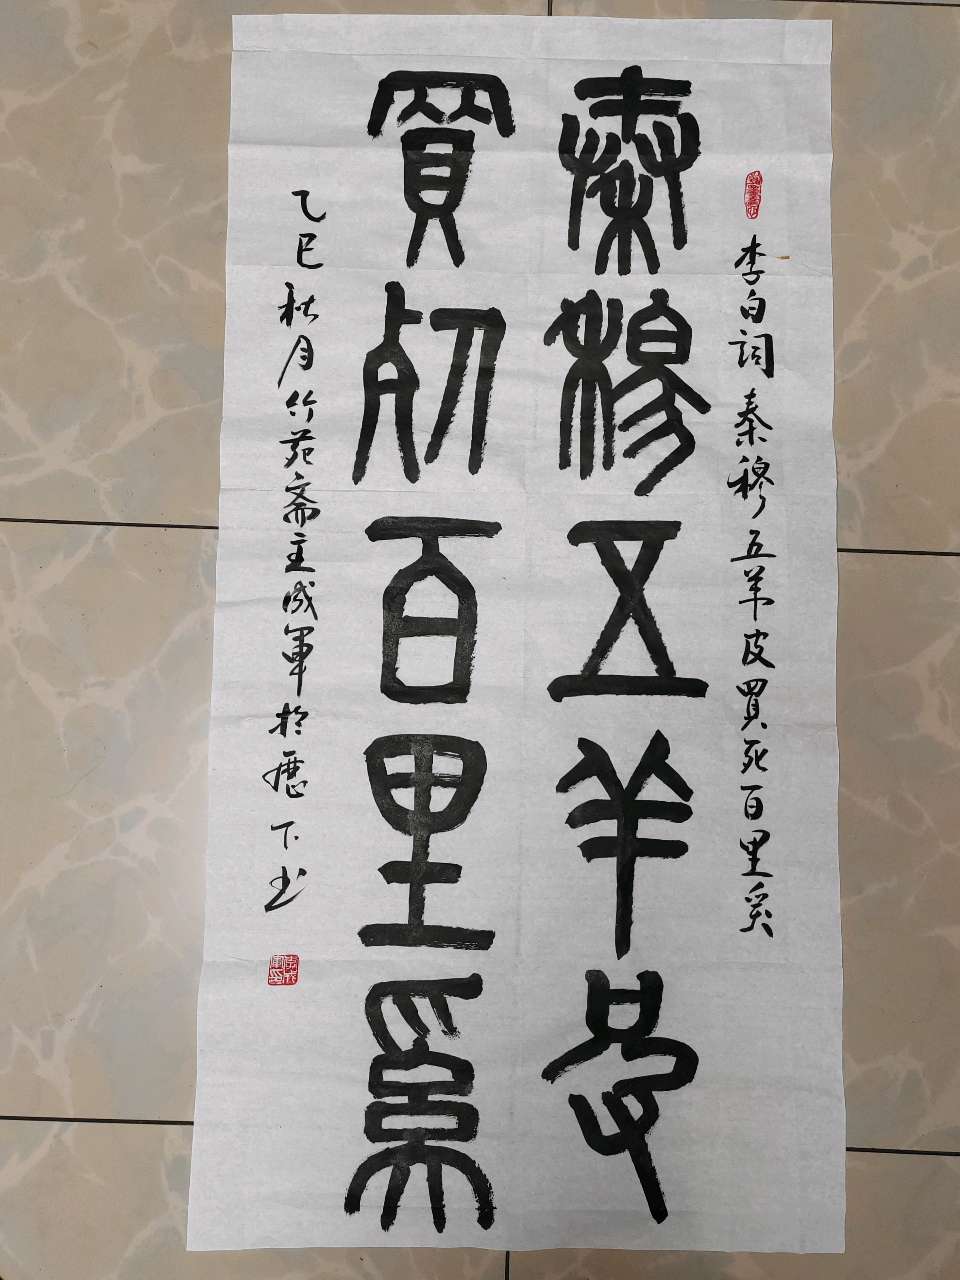 李白詞秦穆五羊皮買死百里奚
秦穆五羊皮
買死百里奚
乙巳秋月竹苑齋主成軍於歷下书